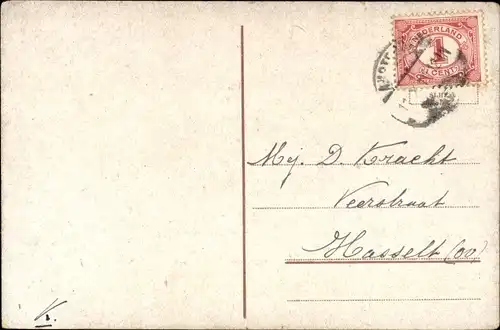 NEDERLAND
1
CENT
Mej. D. Kracht
Veerstraat
Hasselt (OV)
V.